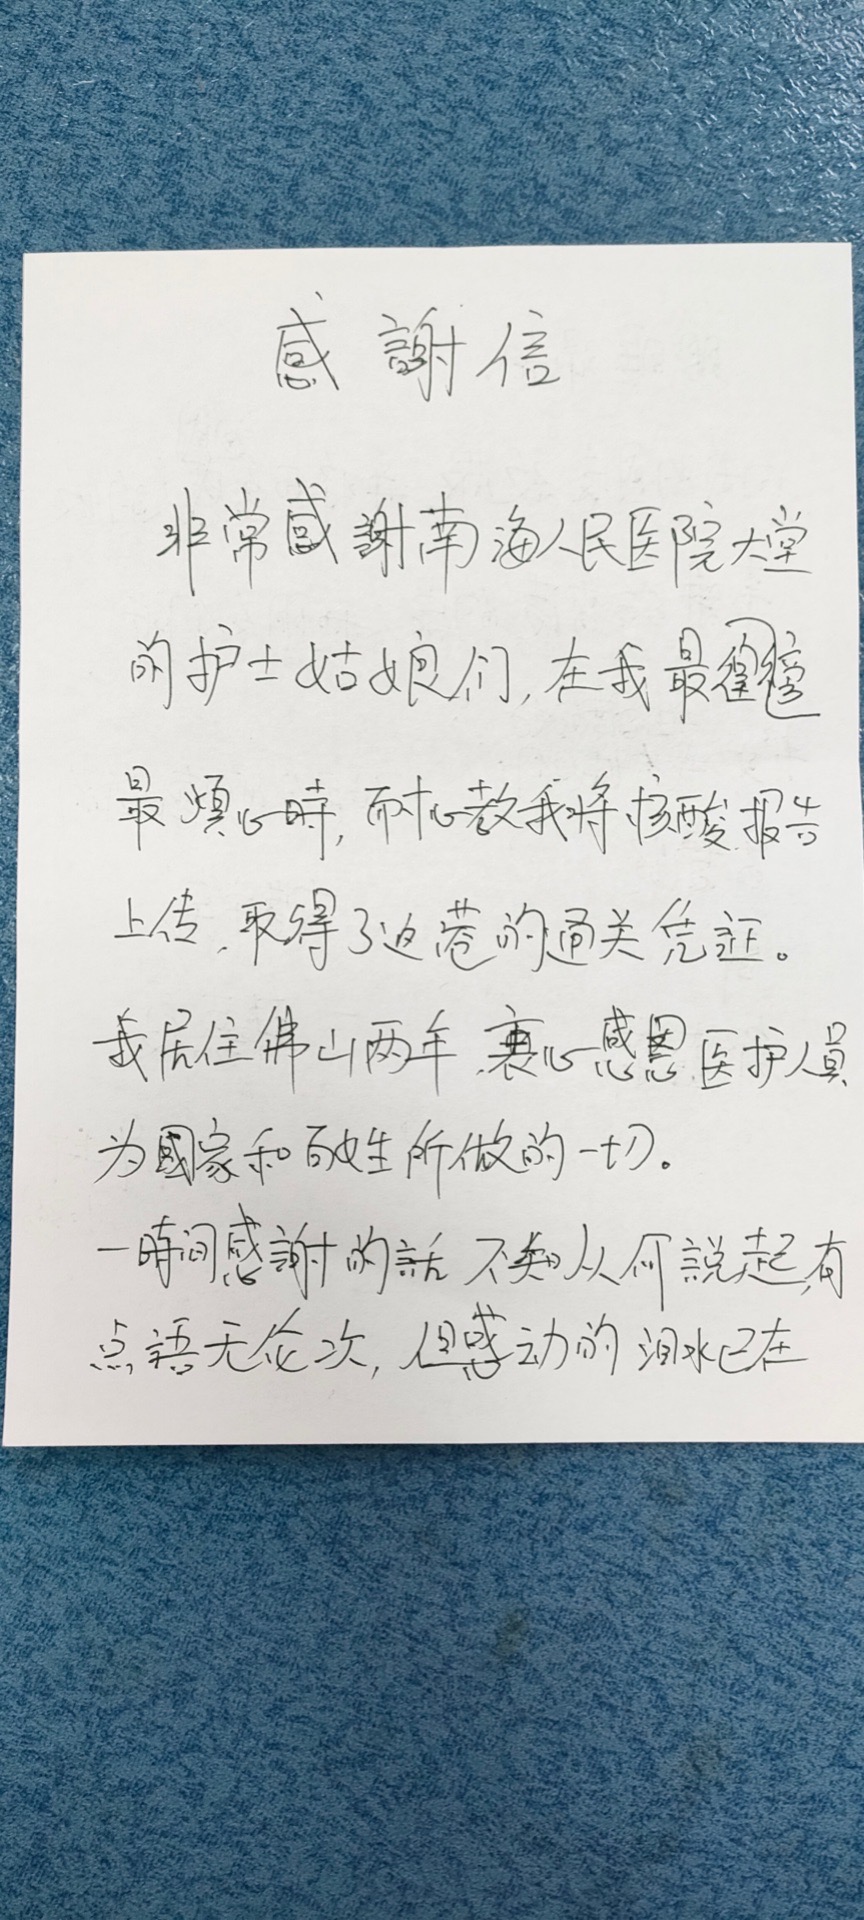 感謝信
非常感謝南海人民医院大堂
的护士姑娘们,在我最徬徨
最煩心時,耐心教我将核酸报告
上传,取得了返港的通关凭証。
我居住佛山两年,衷心感恩医护人員
为國家和百姓所做的一切。
一時间感謝的話不知从何說起,有
点語无伦次,但感动的泪水已在